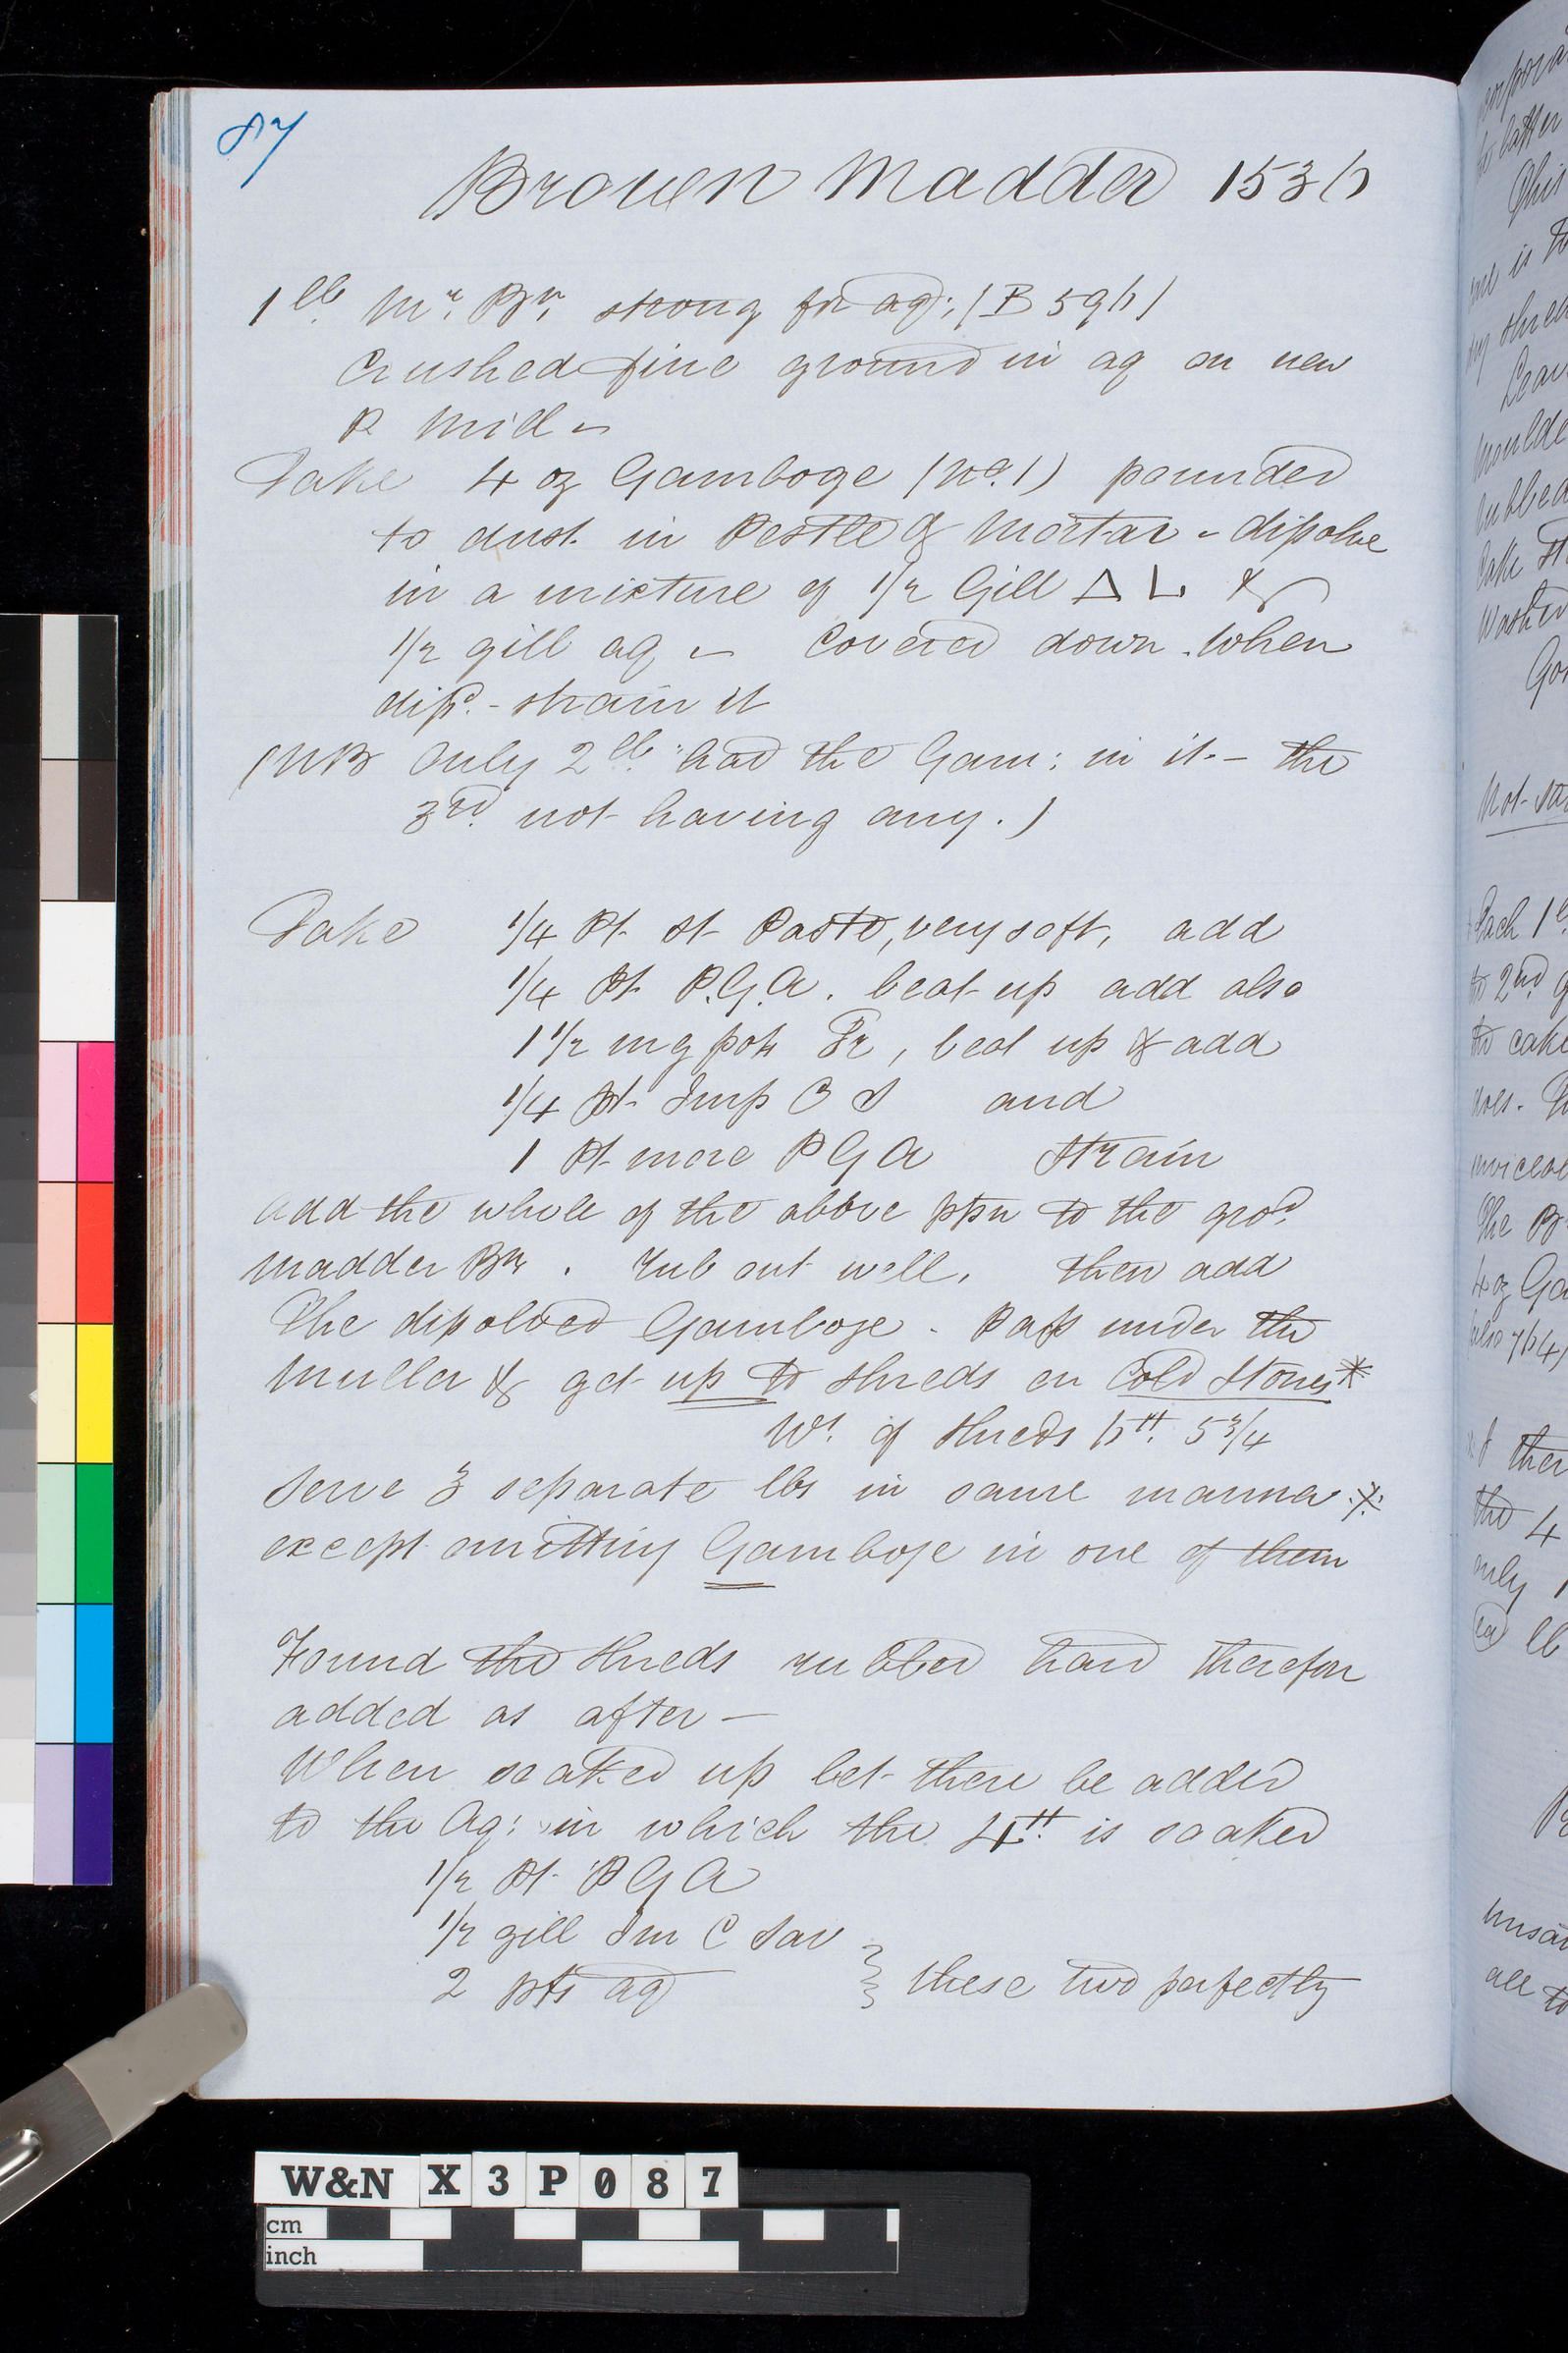 87
Brown Madder 153 b
1 lb. Mr. Br. strong for aq: (B 59 b)
Crushed fine ground in aq on new
P Mill –
Take 4 oz Gamboge (No. 1) pounded
to dust in Pestle & Mortar – dissolve
in a mixture of 1/2 Gill Δ L &
1/2 gill aq – Covered down. When
dissd. – strain it
(NB Only 2 lb. had the Gam: in it – the
3rd. not having any.)
Take 1/4 Pt st Paste, very soft, add
1/4 Pt P.G.A. beat up add also
1 1/2 mg pots Tr, beat up & add
1/4 pt Imp C S and
1 Pt more P G A Strain
add the whole of the above ppn to the grod.
Madder Br. Rub out well, then add
The dissolved Gamboge. Pass under the
Muller & get up to shreds on Cold Stones*
Wt. of shreds 5 3/4
Serve 3 separate lbs in same manner
except omitting Gamboge in one of them
Found the shreds rubbed hard therefore
added as after –
When soaked up let there be added
to the Aq: in which the 4 is soaked
1/2 Pt P G A
1/2 gill Im C Sav
2 pts aq } these two perfectly
orpora
he latter
This
is to
shred
Moulde
rubbed
Cake
Washed
Not
Each 1 lb
to 2nd
to cake
does.
The Br
4 oz Ga
also
ther
the 4
only 1
lb
all to
W&N X 3 P 0 8 7
cm
inch